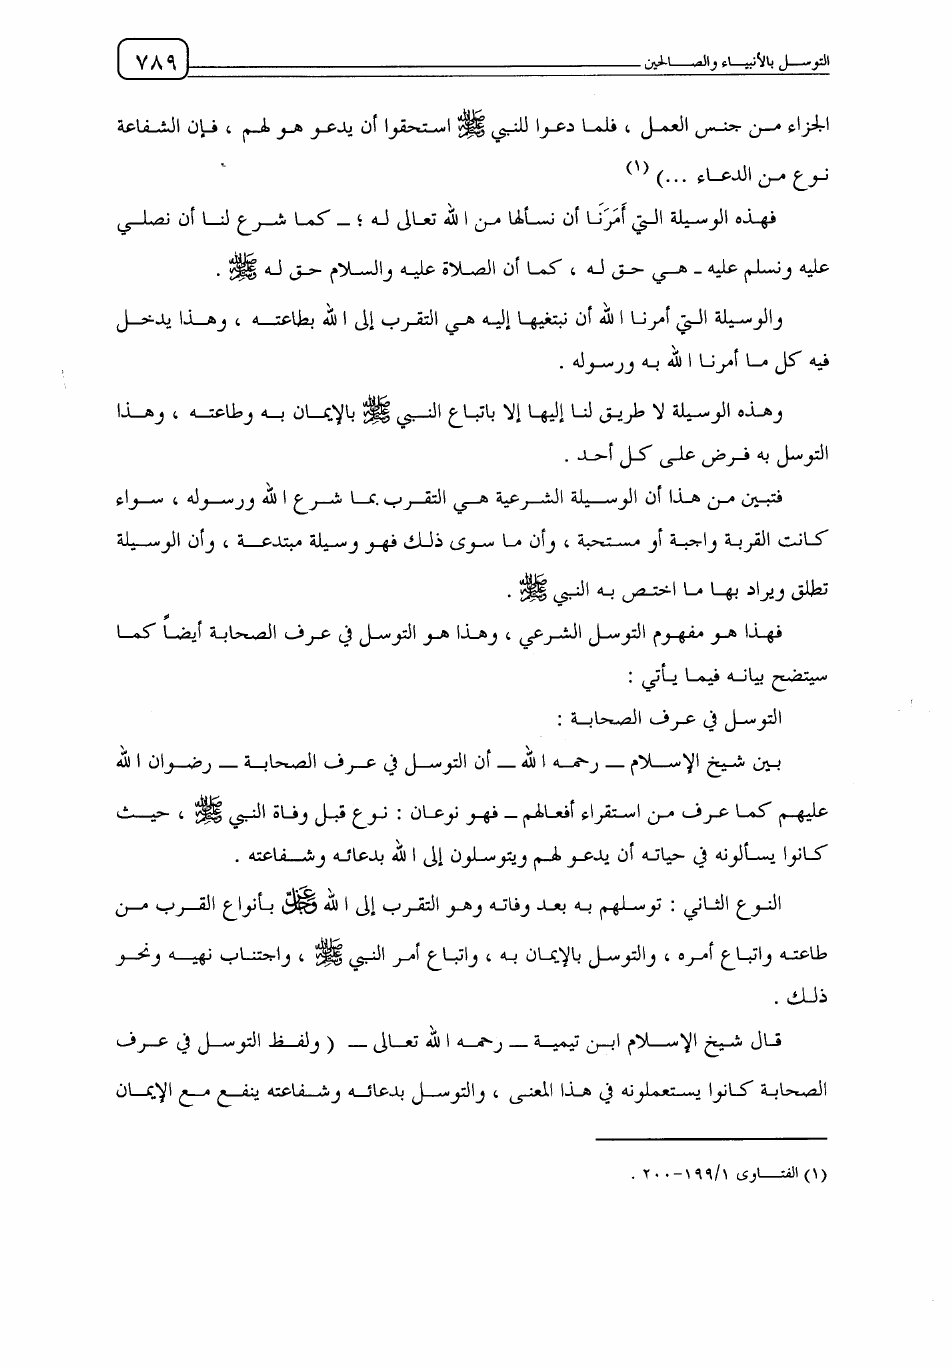 التوسل بالأنبياء والصالحين
٧٨٩
الجزاء من جنس العمل ، فلما دعوا للنبي ﷺ استحقوا أن يدعو هو لهم ، فإن الشفاعة
نوع من الدعاء ...) (١)
فهذه الوسيلة التي أَمَرَنَا أن نسألها من الله تعالى له ؛ ـ كما شرع لنا أن نصلي
عليه ونسلم عليه ـ هي حق له ، كما أن الصلاة عليه والسلام حق له ﷺ .
والوسيلة التي أمرنا الله أن نبتغيها إليه هي التقرب إلى الله بطاعته ، وهذا يدخل
فيه كل ما أمرنا الله به ورسوله .
وهذه الوسيلة لا طريق لنا إليها إلا باتباع النبي ﷺ بالإيمان به وطاعته ، وهذا
التوسل به فرض على كل أحد .
فتبين من هذا أن الوسيلة الشرعية هي التقرب بما شرع الله ورسوله ، سواء
كانت القربة واجبة أو مستحبة ، وأن ما سوى ذلك فهو وسيلة مبتدعة ، وأن الوسيلة
تطلق ويراد بها ما اختص به النبي ﷺ .
فهذا هو مفهوم التوسل الشرعي ، وهذا هو التوسل في عرف الصحابة أيضاً كما
سيتضح بيانه فيما يأتي :
التوسل في عرف الصحابة :
بين شيخ الإسلام ـ رحمه الله ـ أن التوسل في عرف الصحابة ـ رضوان الله
عليهم كما عرف من استقراء أفعالهم ـ فهو نوعان : نوع قبل وفاة النبي ﷺ ، حيث
كانوا يسألونه في حياته أن يدعو لهم ويتوسلون إلى الله بدعائه وشفاعته .
النوع الثاني : توسلهم به بعد وفاته وهو التقرب إلى الله عَزَّوَجَلَّ بأنواع القرب من
طاعته واتباع أمره ، والتوسل بالإيمان به ، واتباع أمر النبي ﷺ ، واجتناب نهيه ونحو
ذلك .
قال شيخ الإسلام ابن تيمية ـ رحمه الله تعالى ـ ( ولفظ التوسل في عرف
الصحابة كانوا يستعملونه في هذا المعنى ، والتوسل بدعائه وشفاعته ينفع مع الإيمان
(١) الفتاوى ١٩٩/١-٢٠٠ .